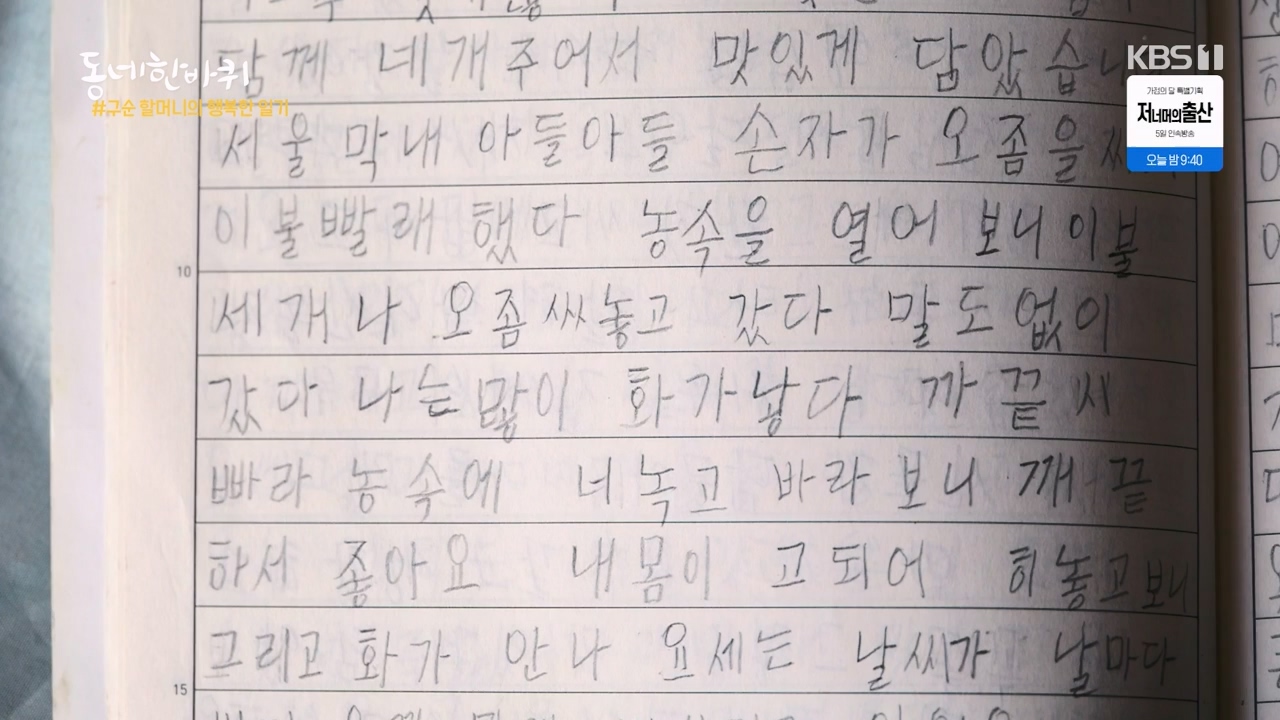 동네한바퀴
#규순 할머니의 행복한 일기
KBS 1
가정의 달 특별기획
저너머의출산
5일 연속방송
오늘 밤 9:40
께 네개주어서 맛있게 담았습니
서울 막내 아들아들 손자가 오좀을
이불빨래 했다 농속을 열어 보니 이불
10
세개나 오좀 싸놓고 갔다 말도 없이
갔다 나는 많이 화가낳다 까끝시
빠라 농속에 너녹고 바라보니 깨끝
하서 좋아요 내몸이 고되어 히놓고보니
그리고 화가 안나 요세는 날씨가 날마다
15